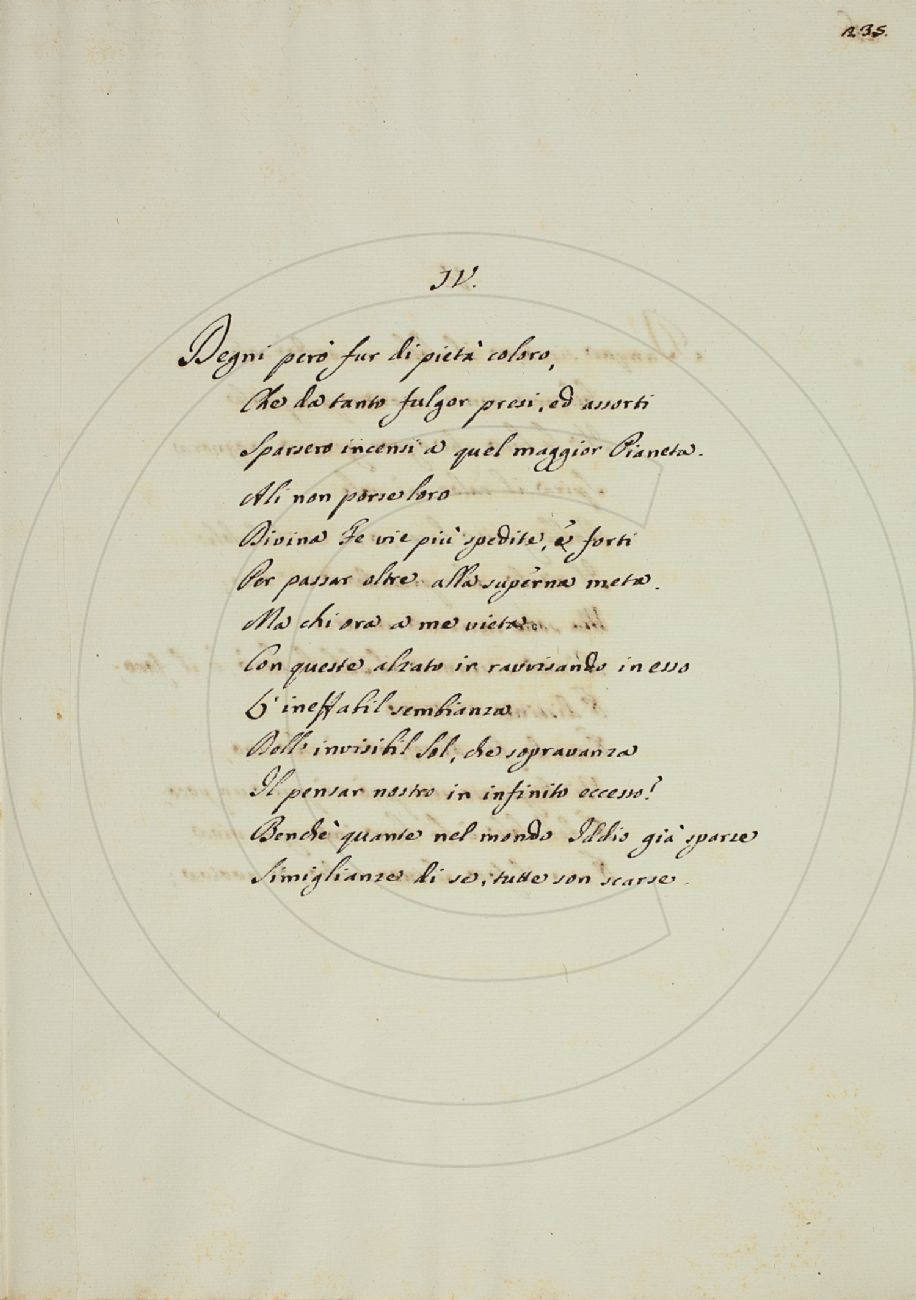 235.
IV.
Degni però fur di pietà coloro,
Che da tanto fulgor presi, ed assorti
Sparsero incensi a quel maggior Pianeta.
Ali non porse loro
Divina Fe vie più spedite, e forti
Per passar oltre alla superna meta.
Ma chi ora a me vieta
Con queste alzato ir ravvisando in esso
L'ineffabil sembianza
Dell' invisibil Sol, che sopravanza
Il pensar nostro in infinito eccesso?
Benchè quante nel mondo Iddio già sparse
Simiglianze di se, tutte son scarse.